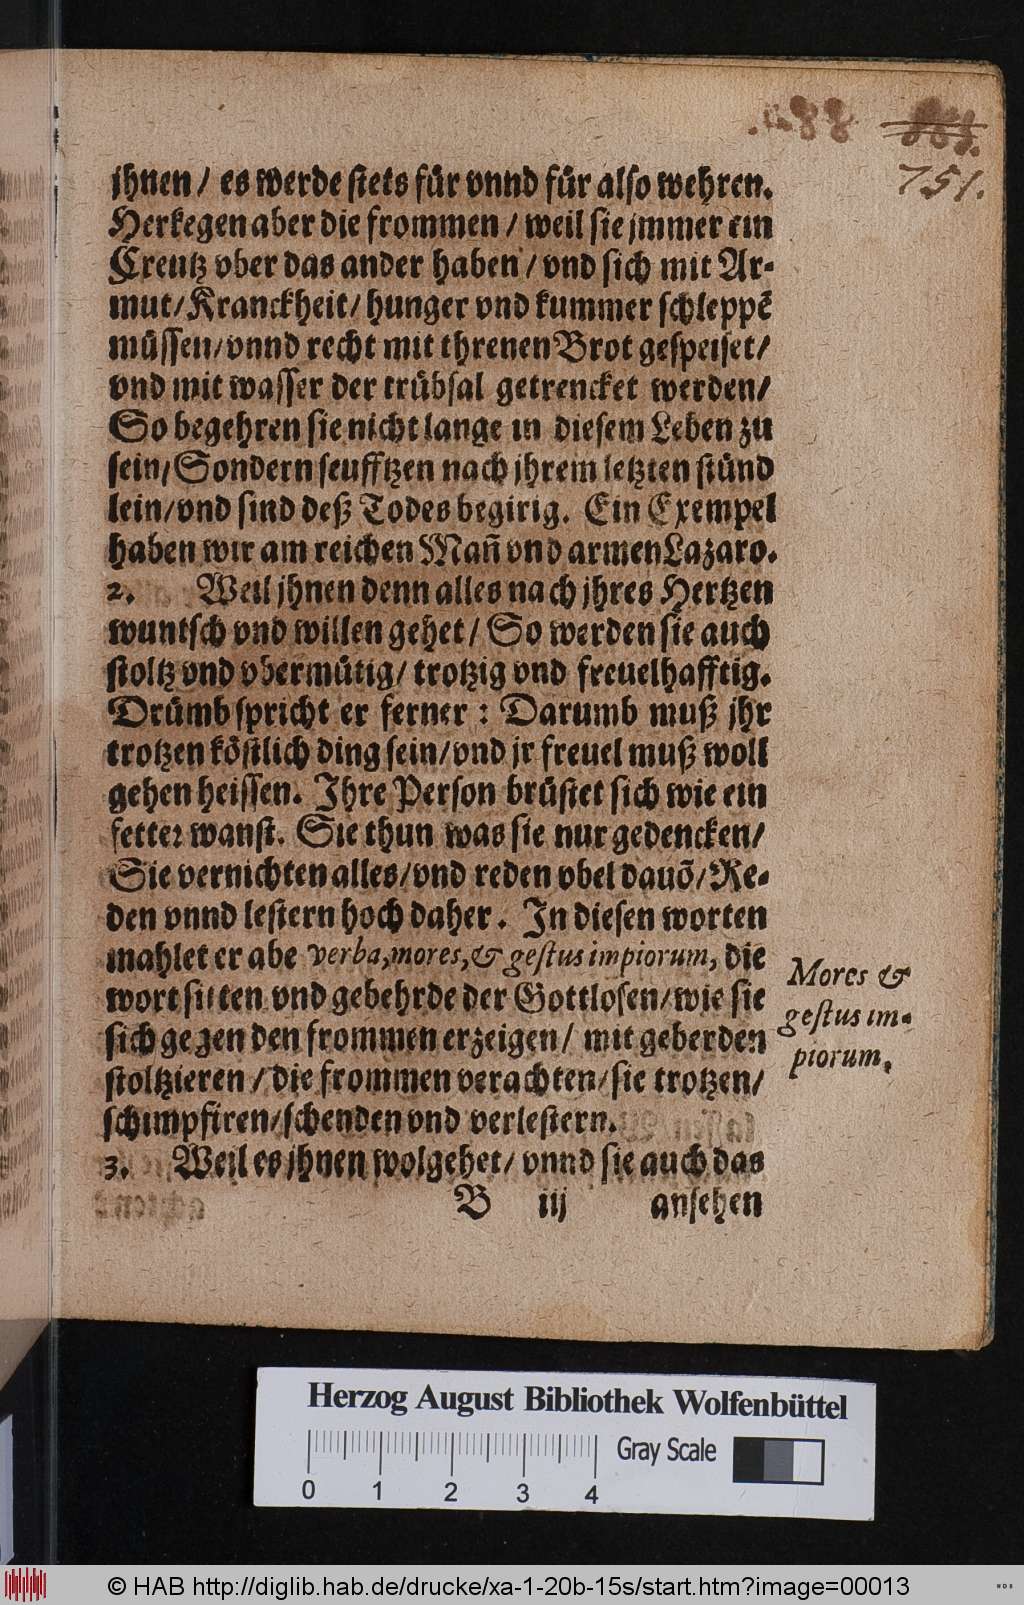 751.
jhnen / es werde stets für vnnd für also wehren.
Herkegen aber die frommen / weil sie jmmer ein
Creutz vber das ander haben / vnd sich mit Ar-
mut / Kranckheit / hunger vnd kummer schleppẽ
müssen / vnnd recht mit threnen Brot gespeiset /
vnd mit wasser der trübsal getrencket werden /
So begehren sie nicht lange in diesem Leben zu
sein / Sondern seufftzen nach jhrem letzten stünd
lein / vnd sind deß Todes begirig. Ein Exempel
haben wir am reichen Mañ vnd armen Lazaro.
2. Weil jhnen denn alles nach jhres Hertzen
wuntsch vnd willen gehet / So werden sie auch
stoltz vnd vbermütig / trotzig vnd freuelhafftig.
Drümb spricht er ferner : Darumb muß jhr
trotzen köstlich ding sein / vnd jr freuel muß woll
gehen heissen. Ihre Person brüstet sich wie ein
fetter wanst. Sie thun was sie nur gedencken /
Sie vernichten alles / vnd reden vbel dauõ / Re-
den vnnd lestern hoch daher. In diesen worten
mahlet er abe verba, mores, & gestus impiorum, die
wort sitten vnd gebehrde der Gottlosen / wie sie
sich gegen den frommen erzeigen / mit geberden
stoltzieren / die frommen verachten / sie trotzen /
schimpfiren / schenden vnd verlestern.
3. Weil es jhnen wolgehet / vnnd sie auch das
B iij ansehen
Mores &
gestus im-
piorum.
Herzog August Bibliothek Wolfenbüttel
Gray Scale
0 1 2 3 4
© HAB http://diglib.hab.de/drucke/xa-1-20b-15s/start.htm?image=00013